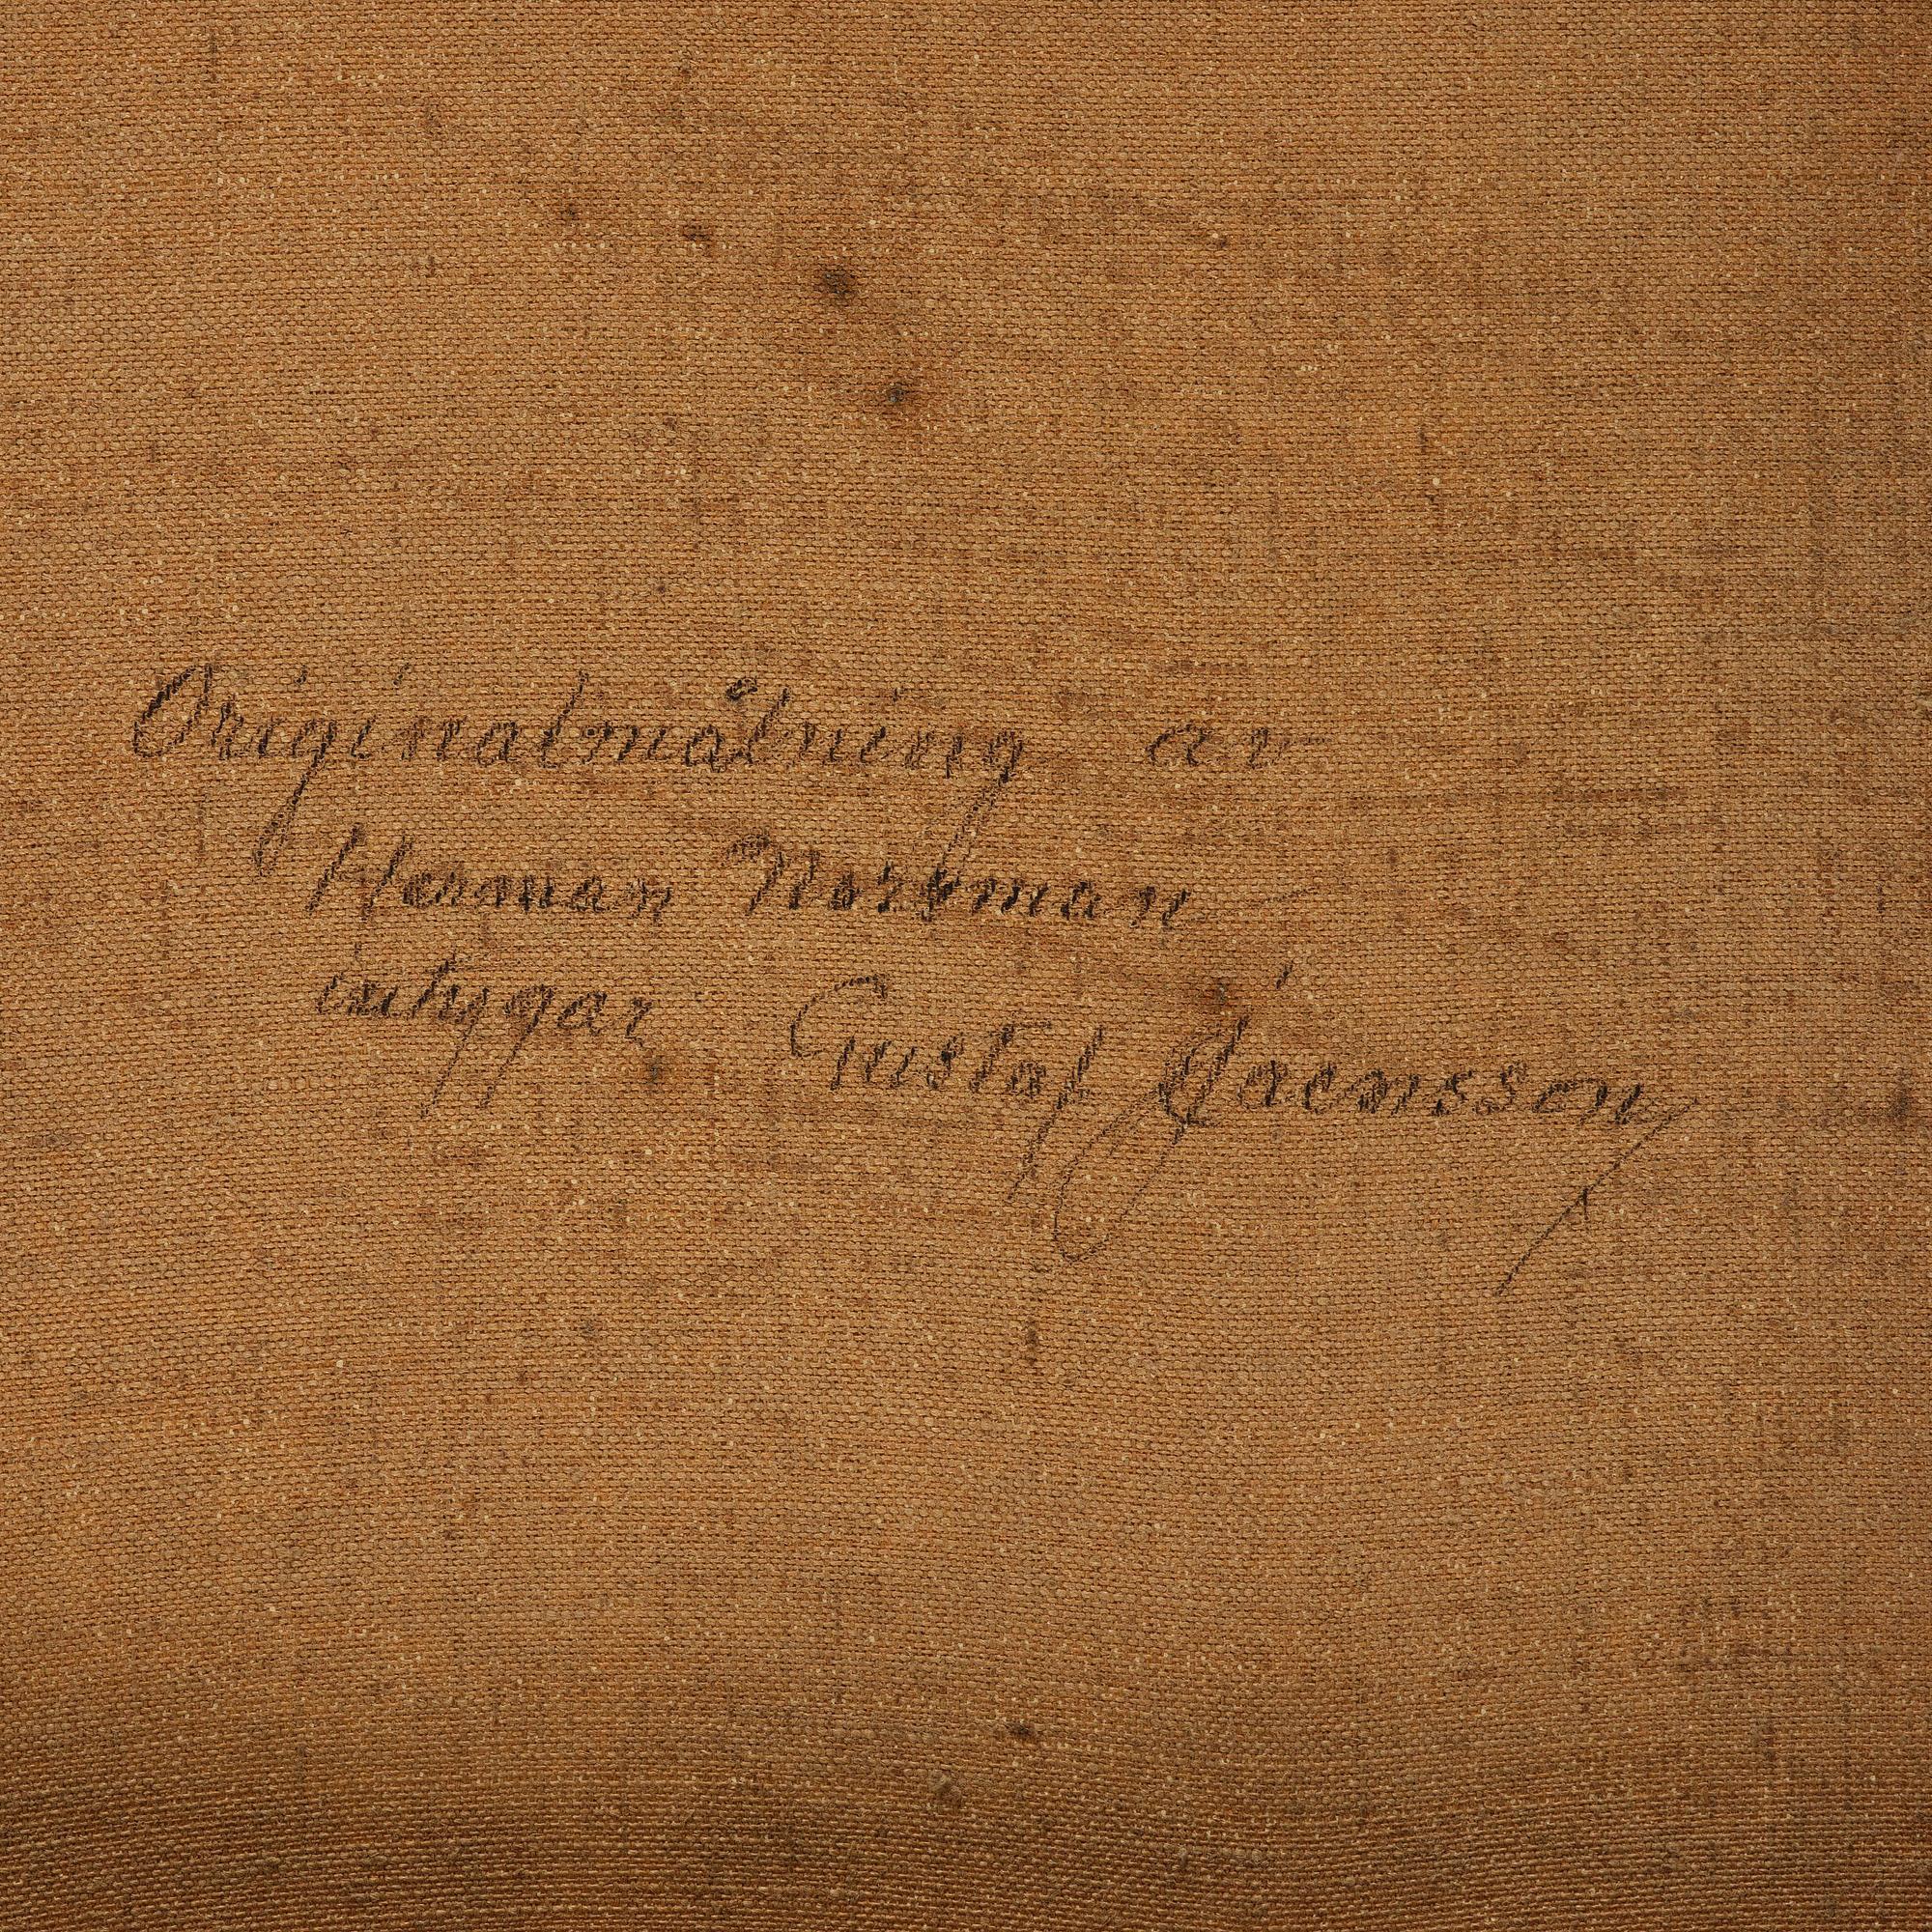 Originalmålning av
Herman Norrman
intygar Gustaf Jaensson